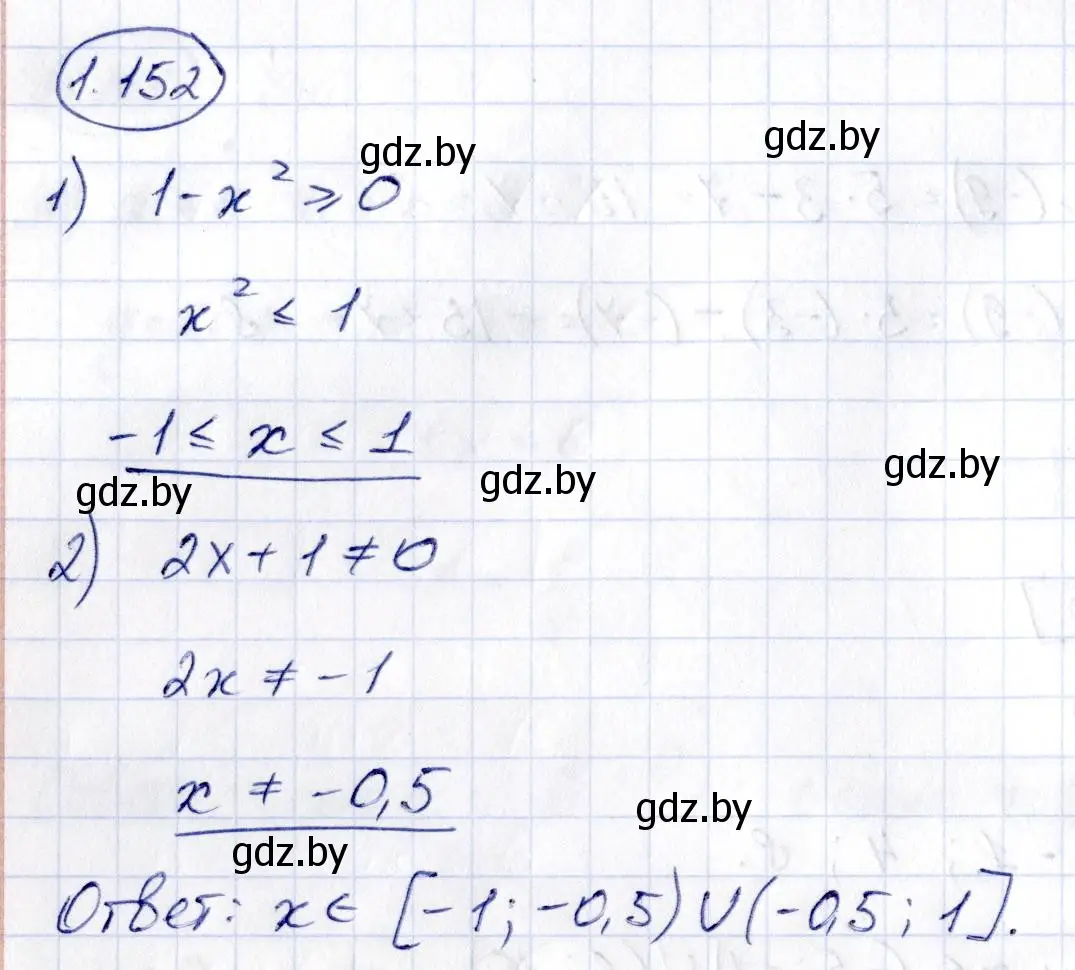 1.152
gdz.by
gdz.by
1) 1 - x² ⩾ 0
x² ≤ 1
-1 ≤ x ≤ 1
gdz.by
gdz.by
gdz.by
2) 2x + 1 ≠ 0
2x ≠ -1
x ≠ -0,5
gdz.by
gdz.by
Ответ: x ∈ [-1; -0,5) ∪ (-0,5; 1].